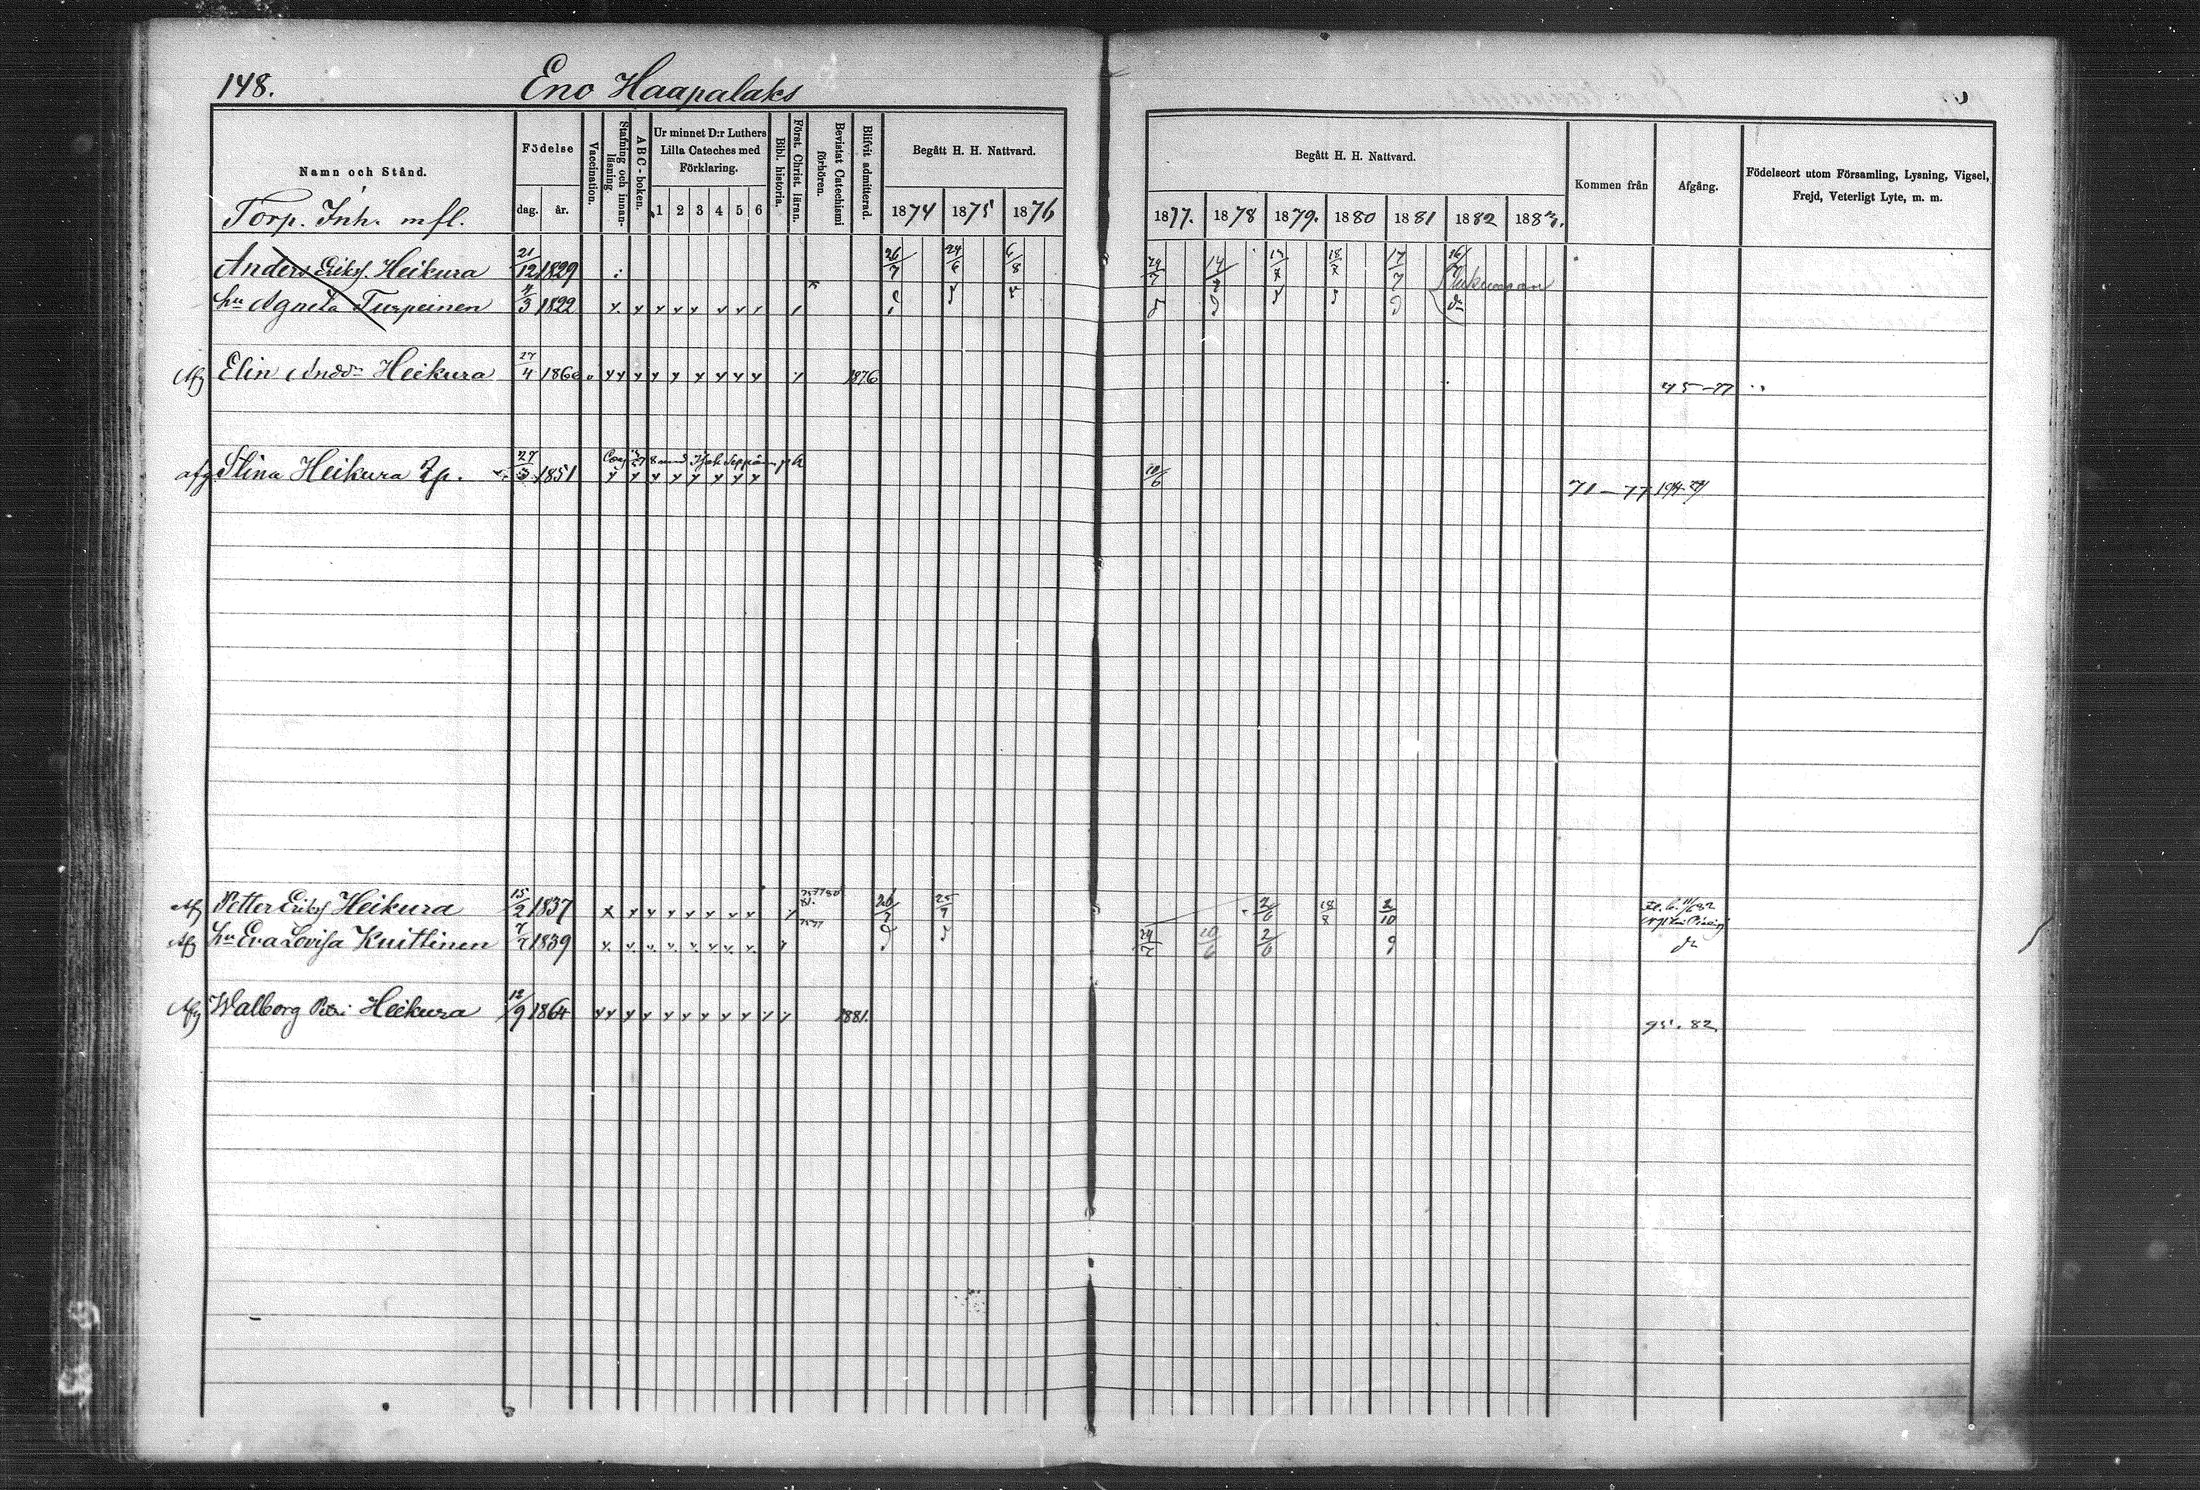 148. Eno Haapalaks
Namn och Stånd.
Födelse
dag. år.
Vaccination.
Stafning och innan-läsning
ABC-boken.
Ur minnet D:r Luthers
Lilla Cateches med
Förklaring.
1 2 3 4 5 6
Bibl. historia.
Först. Christ. läran.
Bevistat Catechismi förhören.
Blifvit admitterad.
Begått H. H. Nattvard.
1874 1875 1876
Begått H. H. Nattvard.
1877. 1878 1879. 1880 1881 1882 1883.
Kommen från
Afgång.
Födelseort utom Församling, Lysning, Vigsel,
Frejd, Veterligt Lyte, m. m.
Torp. Inh. mfl.
Anders Eriks. Heikura 21/12 1829 26/7 24/6 6/8 24/7 14/7 18/7 17/7 16/7
hu Agneta Turpeinen 4/3 1822
Afg Elin Andsdr Heikura 27/4 1860 1876 45-77
afg Stina Heikura 27/3 1851 10/6 71-77
Afg Petter Eriks Heikura 15/2 1837 26/7 25/7 2/6 18/8 2/10
Afg hu Eva Lovisa Kuittinen 7/7 1839 24/7 10/6 2/6
Afg Walborg Heikura 12/9 1864 1881. 95.82.